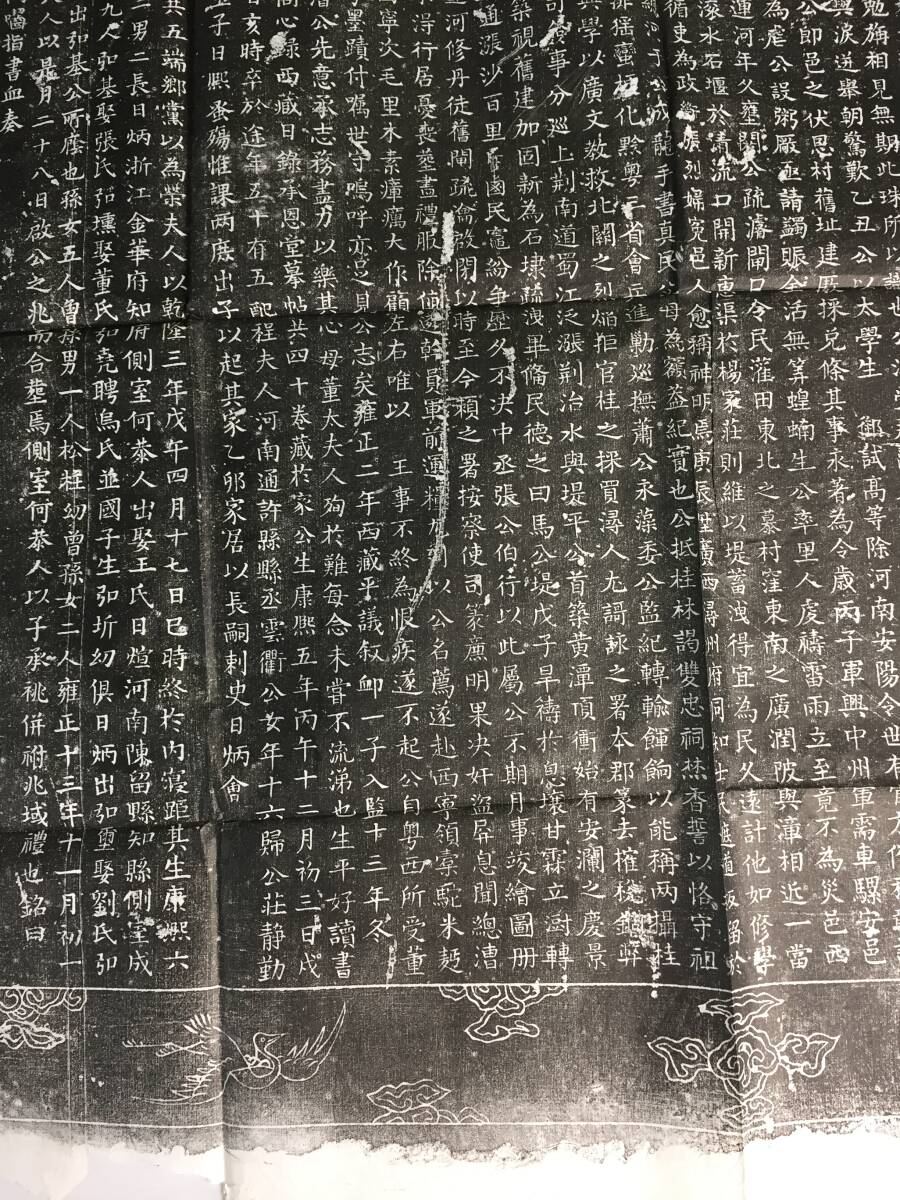 勉旃相見無期此珠所以識也公
興淚迸舉朝驚歎乙丑公以太學生 御試高等除河南安陽令世有
公即邑之伏恩村舊址建厫採兌條其事永著為令歲丙子軍興中州軍需車騾安邑
為虐公設粥厰亟請蠲賑全活無筭蝗蝻生公率里人虔禱雷雨立至竟不為災邑西
運河年久壅閼公疏濬閘口令民灌田東北之慕村窪東南之廣潤陂與漳相近一當
滾水石堰於清流口開新惠渠於楊家莊則維以堤畜洩得宜為民久遠計他如修學
循吏為政張烈婦寃邑人愈稱神明焉庚辰陞廣西潯州府同知遮道留於
公成龍手書真民父母為額葢紀實也公抵桂林謁雙忠祠焚香誓以恪守祖
猺蠻梗化黔粵二省會兵進勦巡撫蕭公永藻委公監紀轉輸餫餉以能稱兩攝桂
興學以廣文教救北關之烈焰拒官桂之採買潯人尤謌詠之署本郡篆去搉稅錮弊
司僉事分巡上荆南道蜀江泛漲荆治水與堤平公首築黃潭頂衝始有安瀾之慶景
築視舊建加固新為石埭疏洩畢偹民德之曰馬公堤戊子旱禱於息壤甘霖立澍轉
通漲沙百里國民竈紛争歷久不決中丞張公伯行以此屬公不期月事竣繪圖册
運河修丹徒舊閘疏瀹啟閉以時至今賴之署按察使司篆廉明果决奸盜屏息聞總漕
淂行居憂喪塟盡禮服除遴幹員軍前運糧以公名薦遂赴西寧領槖駝米麪
寧次毛里木素瘴癘大作顧左右唯以 王事不終為恨疾遂不起公自粵西所受董
墨蹟付囑世守嗚呼亦足見公志矣雍正二年西藏平議叙卹一子入監十三年冬
公先意承志務盡力以樂其心母董太夫人殉於難每念未嘗不流涕也生平好讀書
心錄西藏日錄承恩堂摹帖共四十卷藏於家公生康熙五年丙午十二月初三日戌
亥時卒於途年五十有五配程夫人河南通許縣縣丞雲衢公女年十六歸公莊静勤
子日熙蚤殤惟課两庶出子以起其家乙夘家居以長嗣刺史日炳會
其五端鄉黨以為榮夫人以乾隆三年戊午四月十七日巳時終於內寢距其生康熙六
二男二長日炳浙江金華府知府側室何恭人出娶王氏日煊河南陳留縣知縣側室成
九人弘基娶張氏弘壎娶董氏弘堯聘烏氏並國子生弘圻幼俱日炳出弘璽娶劉氏弘
出弘基公所廕也孫女五人曾孫男一人松程幼曾孫女二人雍正十三年十一月初一
人以是月二十八日啟公之兆而合塟焉側室何恭人以子承祧併祔兆域禮也銘曰
嚙指書血奏